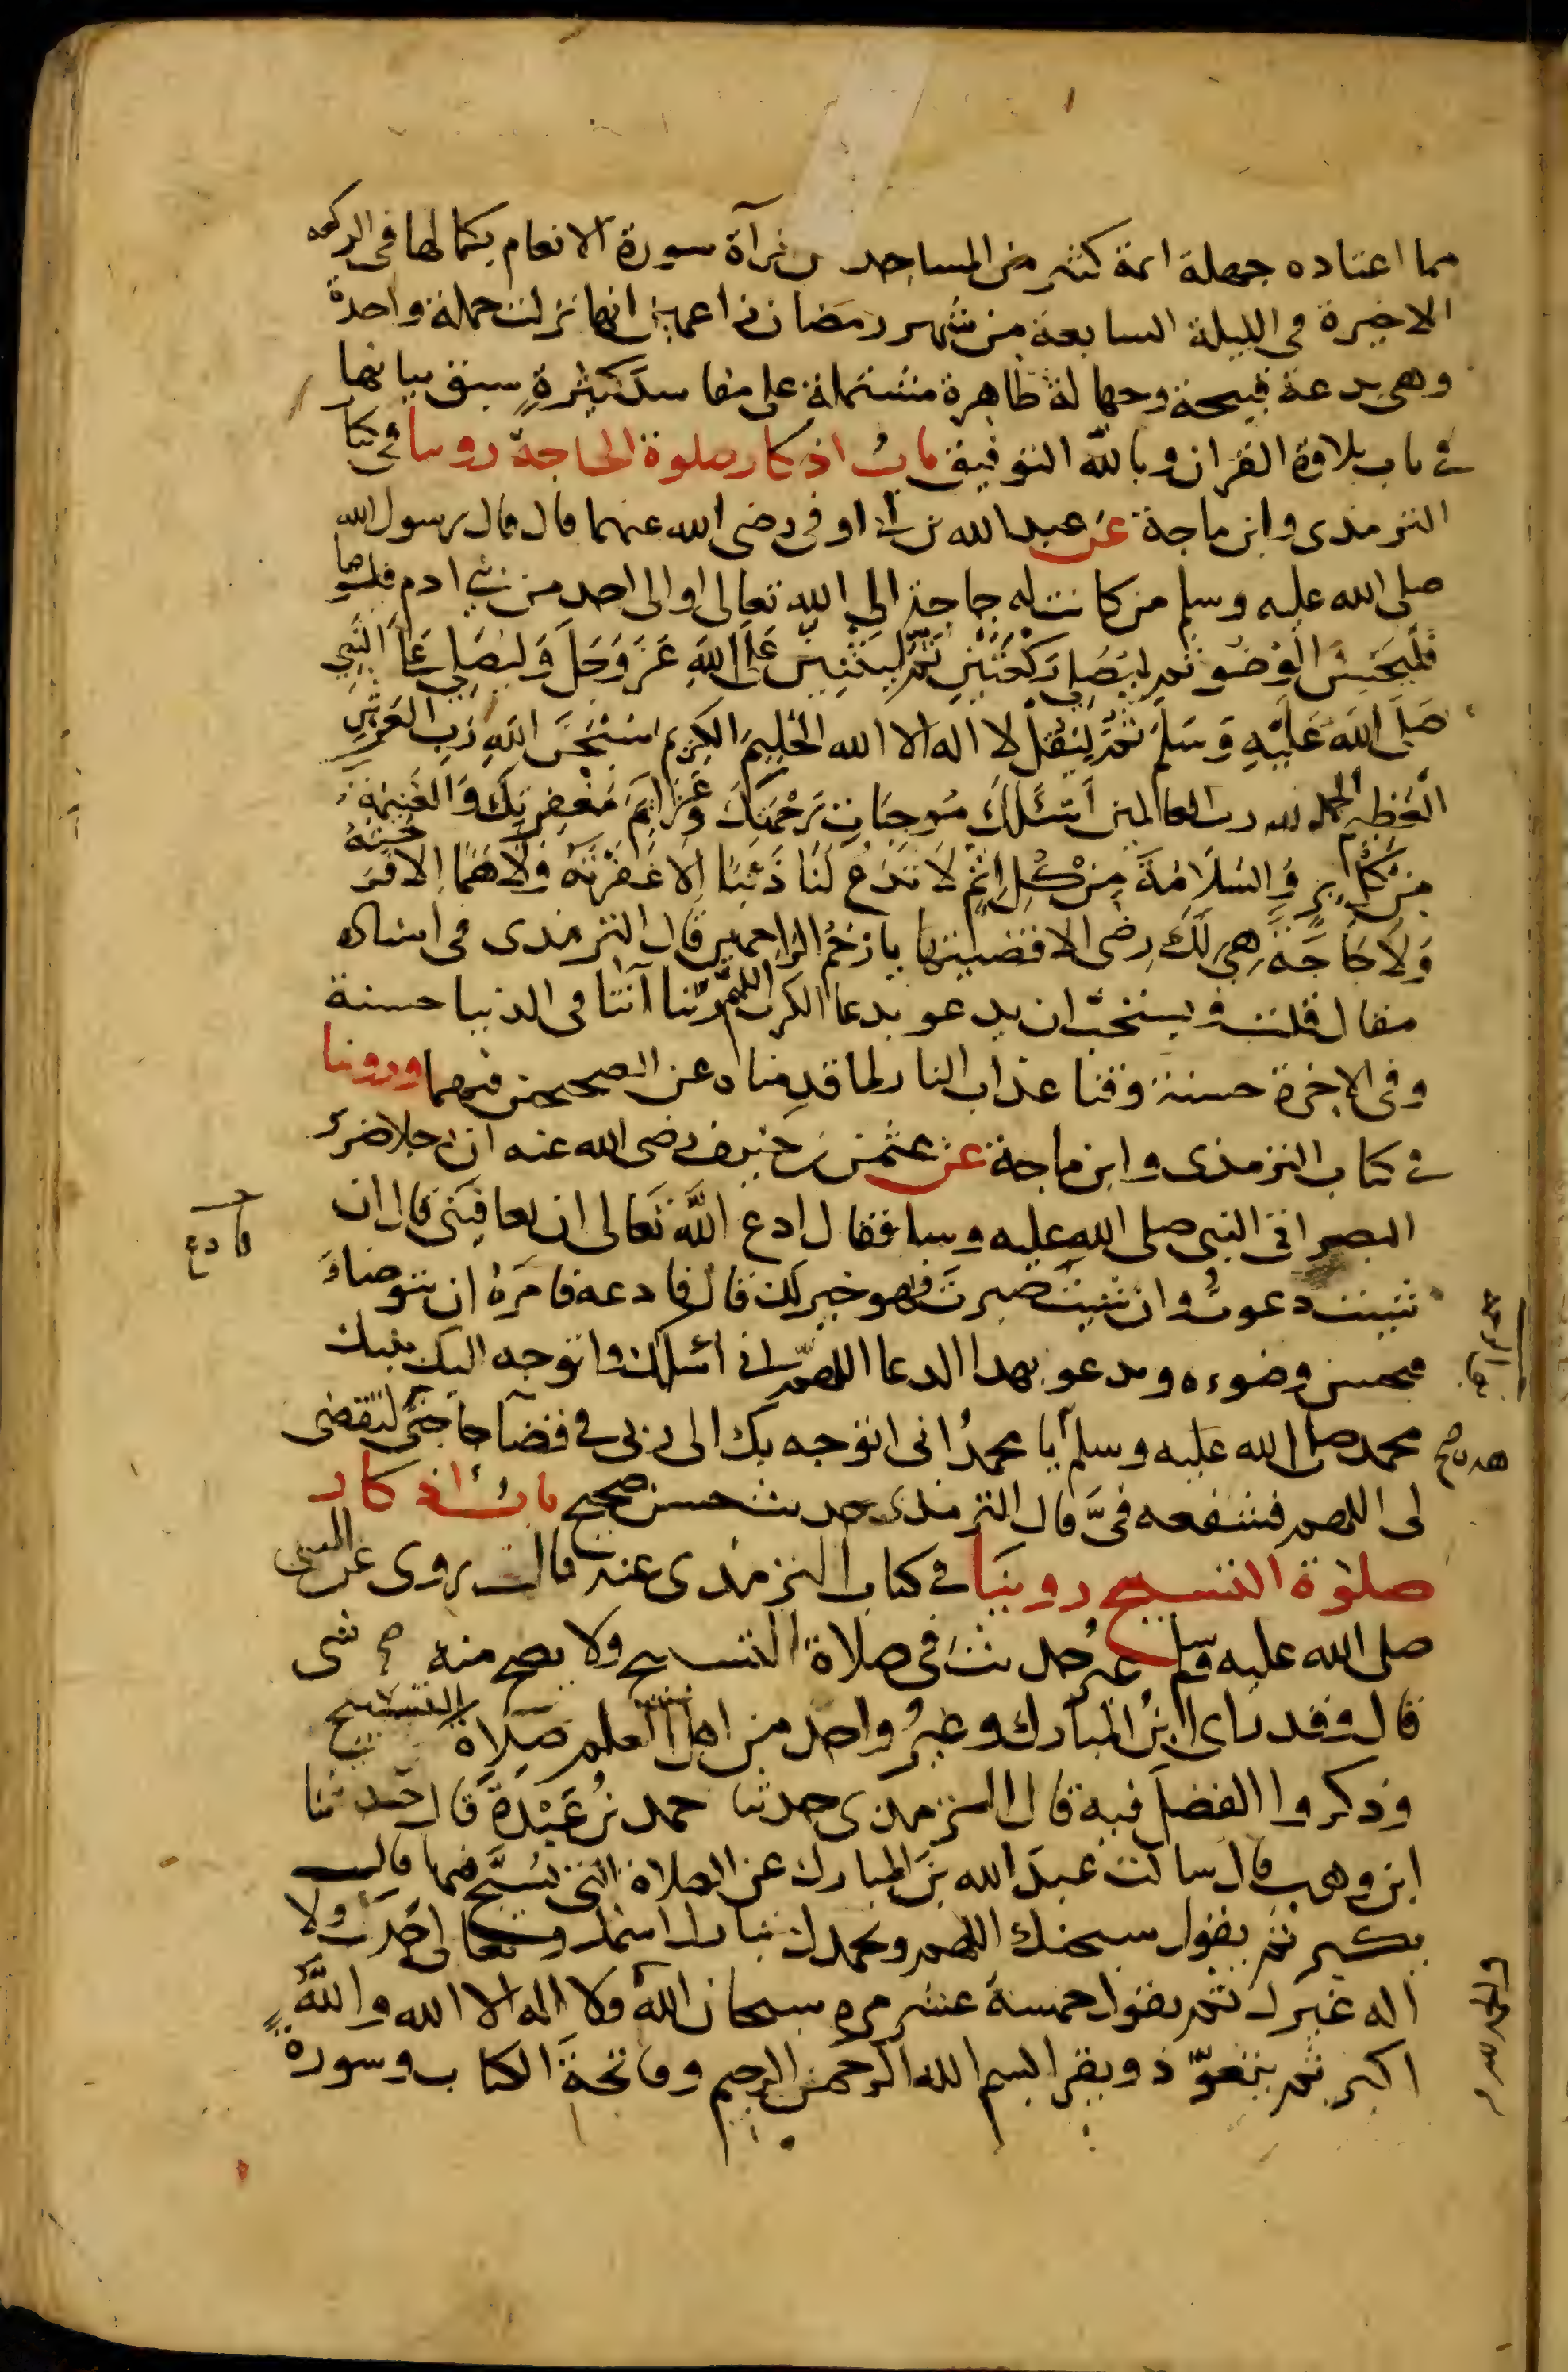 مما اعتاده جهلة ائمة كثير من المساجد من قرآة سورة الانعام بكمالها في الركعه
الاخيرة في الليلة السابعة من شهر رمضان زاعمين انها نزلت جملة واحدة
وهي بدعة قبيحة وجهالة ظاهرة مشتملة على مفاسد كثيرةٍ سبق بيانها
في باب تلاوة القران وبالله التوفيق بابُ اذكار صلوة الحاجة روينا في كتا
الترمذى وابن ماجة عن عبد الله بن ابي اوفى رضى الله عنهما قال قال رسول الله
صلى الله عليه وسلم من كانت له حاجة الى الله تعالى او الى احد من بني ادم فليتوضا
فَلْيُحْسِنْ الْوُضُوَ ثم لْيُصَلِّ رَكْعَتَيْنِ ثُمَّ ليُثْنِيْ عَلَى اللَّهِ عَزَ وَجَلَ وَليُصَلِي عَلَى النَّبِي
صَلَى اللَّهُ عَلَيْهِ وَسَلَمَ ثُمَّ لِيَقُلْ لا اله الا الله الحَلِيمُ الكَرِيم سُبْحَنَ اللَّهِ رَبِ العَرْشِ
الْعَظِيمِ الحمد لله رب العالمين اَسْئَلُكَ مُوجِبَاتِ رَحْمَتِكَ وَعَزَائِمَ مَغْفِرَتِكَ وَالغَنِيمَةَ
مِنْ كُلِ بِرٍ وَالسَلاَمَةَ مِنْ كُلِ اِثْمٍ لاَ تَدَعْ لَنَا ذَنْبًا اِلا غَفَرْتَهُ وَلاَ هَمًا اِلا فَرَّجْتَهُ
وَلاَ حَاجَةً هِيَ لَكَ رِضى الا قضيتها يا ارْحَمَ الرَاحمين قال الترمذى في اسناده
مقال قلت ويستحبّ ان يدعو بدعا الكرب اللهم ربّنا اتنا في الدنيا حسنة
وفي الاخرة حسنة وقنا عذاب النار لما قدمناه عن الصحيحين فيهما وروينا
في كتاب الترمذى وابن ماجة عن عثمن بن حنيف رضى الله عنه ان رجلا ضرير
البصر اتى النبى صلى الله عليه وسلم فقال ادع اللَّهَ تَعَالى ان يعافِيَنى قال ان
شيت دعوتُ وان شيتَ صبرتَ فهو خير لك قال فادعه فامَرَهُ ان يتوضاءَ
فيحسن وضوءه ويدعو بهذا الدعا اللهمّ اني اسئلك واتوجه اليك بنبيك
محمد صلى الله عليه وسلم يا محمدُ انى اتوجه بك الى ربى في قضآ حاجتى لتقضى
لى اللهم فشفعه فىَّ قال الترمذى حديث حسن صحيح بابُ اذكار
صلوة التسبيح روينَا في كتاب الترمذى عنه قال روى عن النبى
صلى الله عليه وسلم غير حديث في صلاة التسبيح ولا يصح منه شى
قال وقد راى ابنُ المبارك وغيرُ واحد من اهل العلم صَلاَة التسبيح
وذكروا الفضلَ فيه قال الترمذى حدثنا حمد بنُ عَبْدَةَ قال حدثنا
ابن وهب قال سالت عبدَ الله بنَ المبارك عن الصلاة التى يُسَبَّح فيها قال
يكبر ثم يقول سبحنك اللهم وبحمدك تبارك اسمك وتعالى جَدُك ولا
اله غيرك ثم يقول خمسة عشر مرة سبحان الله ولا اله الا الله والله
اكبر ثم يتعوّذ ويقرا بسم الله الرحمن الرحيم وفاتحةَ الكتاب وسورةً
فادع
هذه صح
والحمد لله